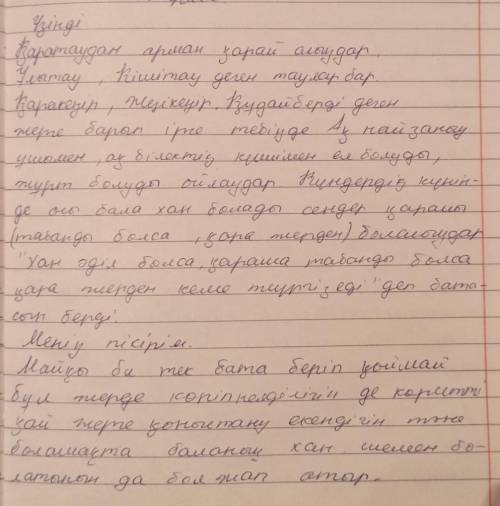 Үзінді
Қаратаудан арман қарай асыңдар.
Ұлытау, Кішітау деген таулар бар.
Қаракеңір, Жезікеңір, Құдайберді деген
жерге барып ірге тебіңде Ақ найзаның
ұшымен, ақ білектің күшімен ел болуды,
жұрт болуды ойлаңдар. Күндердің күнін-
де осы бала хан болады сендер қарашы
(табанды болса, қара жерден) боласыңдар
"Хан әділ болса, қараша табанды болса
қара жерден кеме жүргізеді" деп бата-
сын берді.
Менің пікірім.
Майқы би тек бата беріп қоймай
бұл жерде көріпкелділігін де көрсетті
қай жерге қоныстану екендігін және
болашақта баланың хан менен бо-
латынын да болжап отыр.